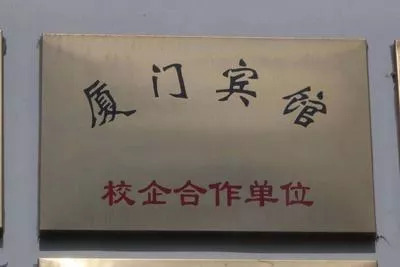 厦门宾馆
校企合作单位